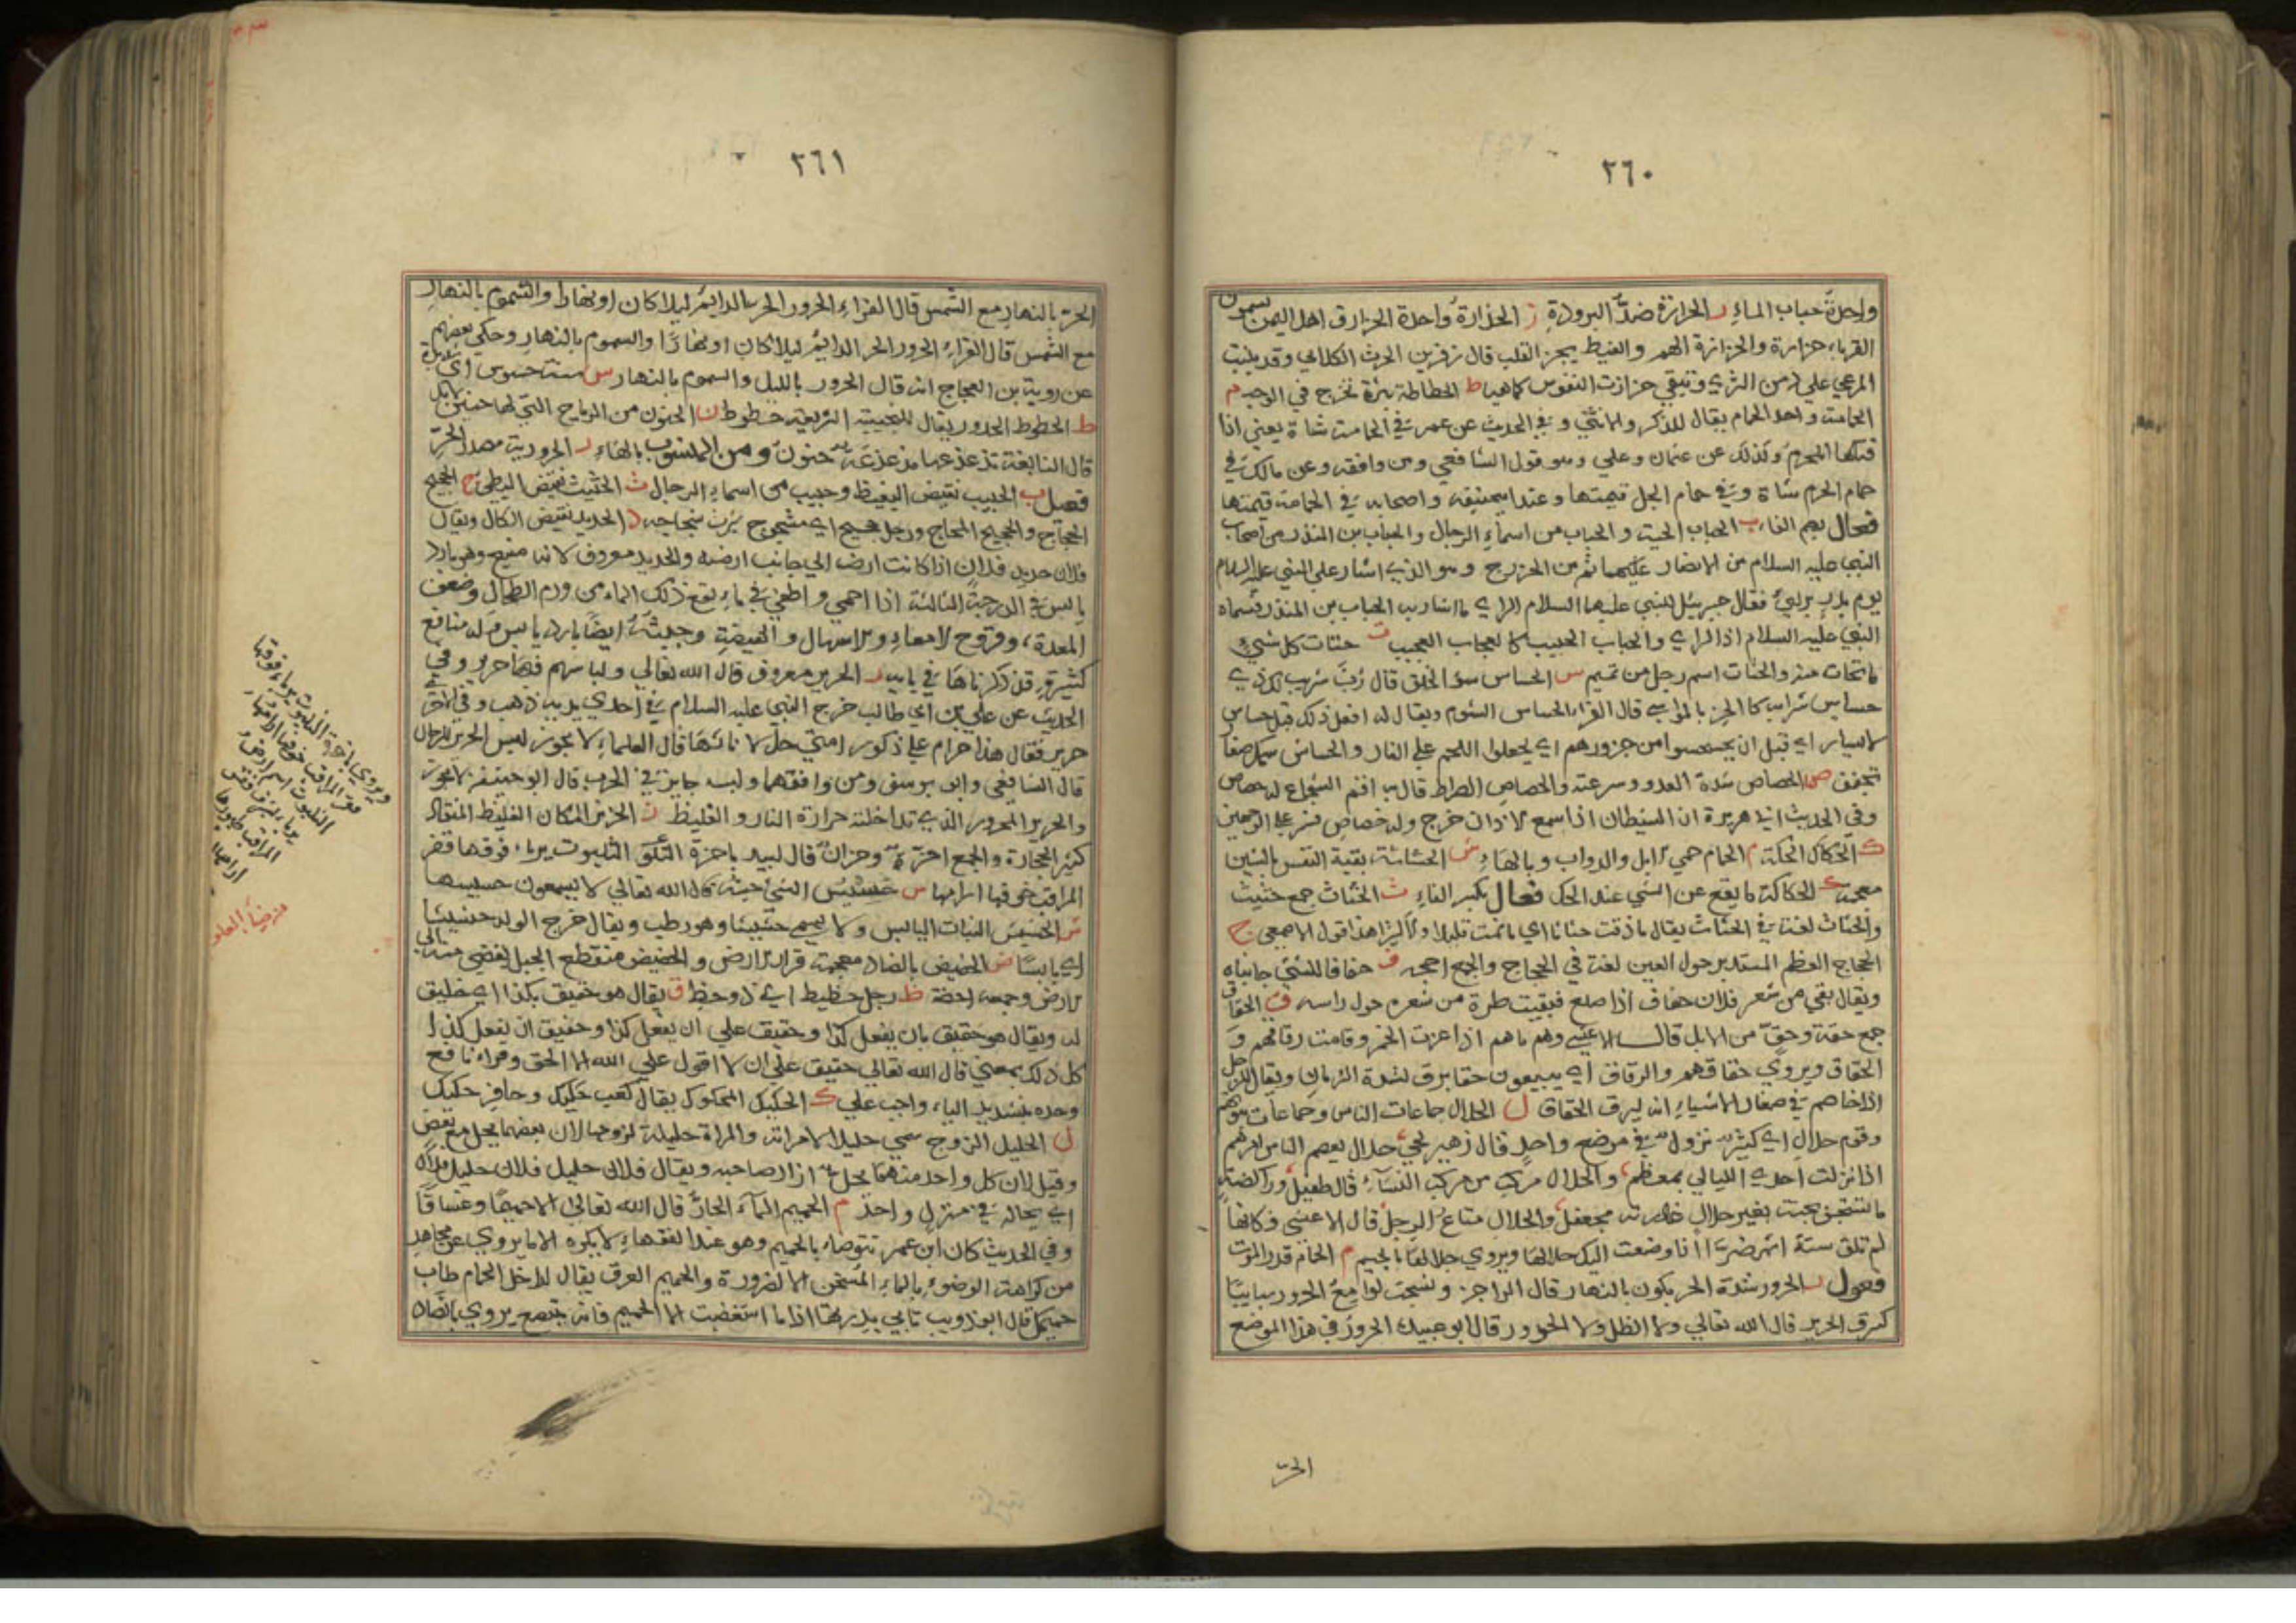 ٢٦٠
واحدة حباب الماء ر الحرارة ضد البرودة ز الحزازة واحدة الحزاز في اهل اليمن يسمون
القرباء حزازة والحزازة الهم والغيظ يحز القلب قال زفر بن الحرث الكلابي وقد ينبت
المرعي على دمن الثري وتبقي حزازت النفوس كماهيا ط الحطاطة بثرة تخرج في الوجه م
الحمامة واحد الحمام يقال للذكر والانثي وفي الحديث عن عمر في الحمامة شاة يعني اذا
قتلها المحرم وكذلك عن عثمان وعلي وهو قول الشافعي ومن وافقه وعن مالك في
حمام الحرم شاة وفي حمام الحل قيمتها وعند ابيحنيفة واصحابه في الحمامة قيمتها
فعال بضم الفاء ب الحباب الحية والحباب من اسماء الرجال والحباب بن المنذر من اصحاب
النبي عليه السلام من الانصار ثم من الخزرج وهو الذي اشار على النبي عليه السلام
يوم بدر برأي فقال جبريل للنبي عليهما السلام الراي ما اشار به الحباب بن المنذر فسماه
النبي عليه السلام اذا الراي والحباب الحبيب كالعجاب العجيب ت حتات كل شيء
ما تحات منه والحتات اسم رجل من تميم س الحساس سوء الخلق قال رب شريب لك ذي
حساس شرابه كالحز بالمواسي قال الفراء الحساس الشوم ويقال له افعل ذلك قبل حساس
الايسار اي قبل ان يحسحسوا من جزورهم اي يجعلوا اللحم على النار والحساس سمك صغار
تجفف ص الحصاص شدة العدو وسرعته والحصاص الضراط قال به اقم الشجاع له حصاص
وفي الحديث ابي هريرة ان الشيطان اذا سمع الاذان خرج وله حصاص فسر على الوجهين
ك الحكاك الحكة م الحمام حمي الابل والدواب وبالهاء ش الحشاشة بقية النفس بالشين
معجمة ك الحكاكة ما يقع عن الشي عند الحك فعال بكسر الفاء ث الحثاث جمع حثيث
والحثاث لغة في الحثاث يقال ما ذقت حثاثا اي ما نمت قليلا ولا كثيرا هذا قول الاصمعي ج
الحجاج العظم المستدير حول العين لغة في الحجاج والجمع احجه ف حفافا للشي جانباه
ويقال بقي من شعر فلان حفاف اذا صلع فبقيت طرة من شعره حول راسه ق الحقاق
جمع حقة وحق من الابل قال الاعشي وهم ما هم اذا عزت الخمر وقامت زقاقهم و
الحقاق ويروي حقاقهم والزقاق اي يبيعون حقا بزق لشدة الزمان ويقال للرجل
اذا خاصم في صغار الاشياء انه لنزق الحقاق ل الحلال جماعات الناس وجماعات بيوتهم
وقوم حلال اي كثير نزول في موضع واحد قال زهير لحي حلال يعصم الناس امرهم
اذا نزلت احدي الليالي بمعظم والحلال مركب من مراكب النساء قال طفيل وراكضة
ما تستجن بجنة بغير حلال غادرته مجعفل والحلال متاع الرجل قال الاعشي فكانها
لم تلق ستة اشهر ضرا اذا وضعت اليك حلالها ويروي جلالها بالجيم م الحمام قدر الموت
فعول ر الحرور شدة الحر يكون بالنهار قال الراجز ونسجت لوامع الحرور سبايبا
كسرق الحرير قال الله تعالي ولا الظل ولا الحرور قال ابو عبيدة الحرور في هذا الموضع
الحر
٢٦١
الحر بالنهار مع الشمس قال الفراء الحرور الحر الدايم ليلا كان او نهارا والسموم بالنهار
مع الشمس قال الفراء الحرور الحر الدايم ليلا كان او نهارا والسموم بالنهار وحكي بعضهم
عن روبة بن العجاج انه قال الحرور بالليل والسموم بالنهار س سنة حسوس اي شديدة
ط الحطوط الحدور يقال للنجيبة السريعة حطوط ن الحنون من الرياح التي لها حنين كالابل
قال النابغة تذعذعها مذعذعة حنون ومن المنسوب بالهاء ر الحرورية مصدر الحر
فصل ب الحبيب نقيض البغيظ وحبيب من اسماء الرجال ث الحثيث نقيض البطي ج الحجيج
الحجاج والحجيج المحاج ورجل حجيج اي مشجوج سبرت شجاجه د الحديد نقيض الكال ويقال
فلان حديد فلان اذا كانت ارضه الي جانب ارضه والحديد معروف لانه منيع وهو بارد
يابس في الدرجة الثالثة اذا احمي واطفي في ماء نفع ذلك الماء من ورم الطحال وضعف
المعدة وقروح الامعاء والاسهال والهيضة وخبثه ايضا بارد يابس وله منافع
كثيرة قد ذكرناها في بابه ر الحرير معروف قال الله تعالي ولباسهم فيها حرير وفي
الحديث عن علي بن ابي طالب خرج النبي عليه السلام في احدي يديه ذهب وفي الاخري
حرير فقال هذا حرام على ذكور امتي حل لاناثها قال العلماء لا يجوز لبس الحرير للرجال
قال الشافعي وابو يوسف ومن وافقهما ولبسه جايز في الحرب قال ابو حنيفة لا يجوز
والحرير المحرور الذي تداخلته حرارة النار والغليظ ز الحزيز المكان الغليظ المنقاد
كثير الحجارة والجمع احزة وحزان قال لبيد باحزة الثلبوت يربا فوقها قفر
المراقب خوفها ارامها س حسيس الشي حسه قال الله تعالي لا يسمعون حسيسها
ش الحشيش النبات اليابس ولا يسمي حشيشا وهو رطب ويقال خرج الولد حشيشا
اي يابسا ض الحضيض بالضاد معجمة قرار الارض والحضيض منقطع الجبل يفضي منه الي
الارض وجمعه احضة ظ رجل حظيظ اي ذو حظ ق يقال هو حقيق بكذا اي خليق
له ويقال هو حقيق بان يفعل كذا وحقيق على ان يفعل كذا وحقيق ان يفعل كذا
كل ذلك بمعني قال الله تعالي حقيق على ان لا اقول على الله الا الحق وقراء نافع
وحده بتشديد الياء واجب علي ك الحكيك المحكوك يقال كعب حكيك وحافر حكيك
ل الحليل الزوج سمي حليلا لامراته والمراة حليلة لزوجها لان بعضهما يحل مع بعض
وقيل لان كل واحد منهما يحل ازار صاحبه ويقال فلان حليل فلان حليل فلان
اي يحاله في منزل واحد م الحميم الماء الحار قال الله تعالي الا حميما وغساقا
وفي الحديث كان ابن عمر يتوضاء بالحميم وهو عند الفقهاء لا يكره الا ما يروي عن مجاهد
من كراهة الوضوء بالماء المسخن الا لضرورة والحميم العرق يقال لداخل الحمام طاب
حميمك قال ابو ذويب تابي بدرتها اذا ما استغضبت الا الحميم فانه يتبصع يروي بالضاد
ويروي باحزة الثلبوت يربا فوقها
قفر المراقب خوفها ارامها
الثلبوت اسم ارض
المراقب
ارامها